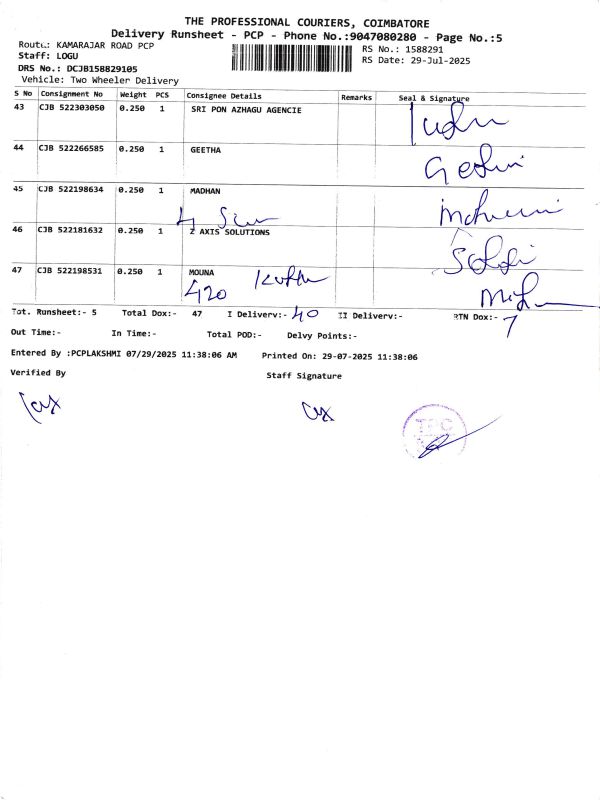 THE PROFESSIONAL COURIERS, COIMBATORE
Delivery Runsheet - PCP - Phone No.:9047080280 - Page No.:5
Route: KAMARAJAR ROAD PCP RS No.: 1588291
Staff: LOGU RS Date: 29-Jul-2025
DRS No.: DCJB158829105
Vehicle: Two Wheeler Delivery
S No Consignment No Weight PCS Consignee Details Remarks Seal & Signature
43 CJB 522303050 0.250 1 SRI PON AZHAGU AGENCIE
44 CJB 522266585 0.250 1 GEETHA
45 CJB 522198634 0.250 1 MADHAN
46 CJB 522181632 0.250 1 Z AXIS SOLUTIONS
47 CJB 522198531 0.250 1 MOUNA
420
Tot. Runsheet:- 5 Total Dox:- 47 I Delivery:- 40 II Delivery:- RTN Dox:- 7
Out Time:- In Time:- Total POD:- Delvy Points:-
Entered By :PCPLAKSHMI 07/29/2025 11:38:06 AM Printed On: 29-07-2025 11:38:06
Verified By Staff Signature
TPC